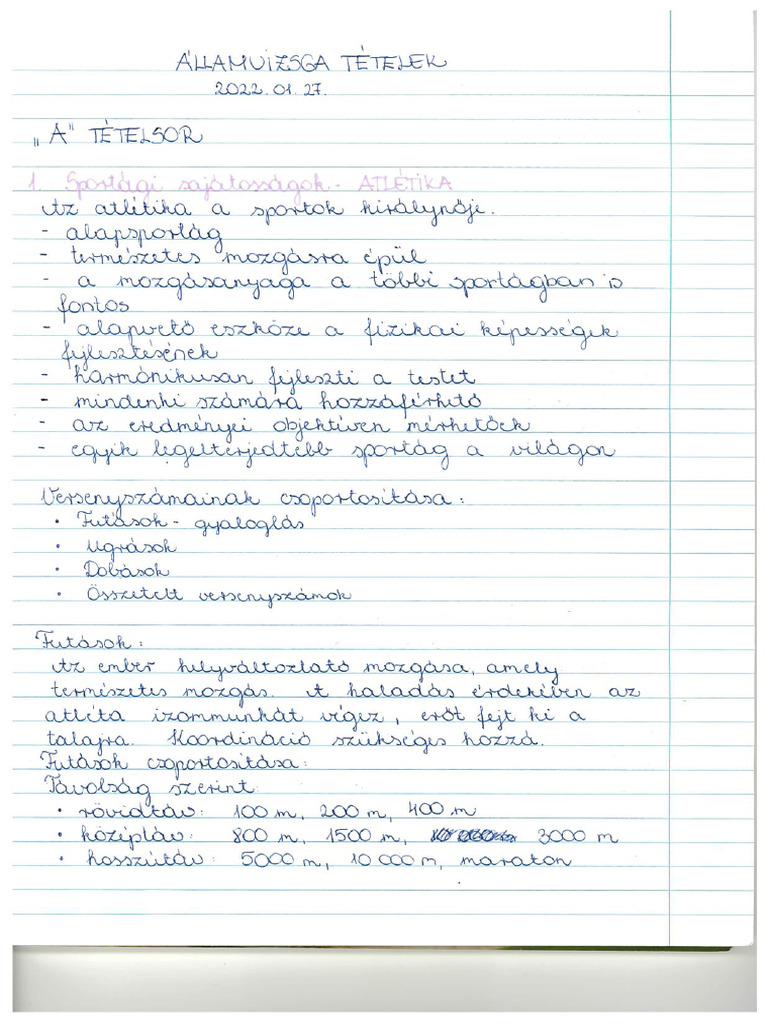 ÁLLAMVIZSGA TÉTELEK
2022.01.27.
„A" TÉTELSOR
1. Sportági sajátosságok - ATLÉTIKA
Az atlétika a sportok királynője.
- alapsportág
- természetes mozgásra épül
- a mozgásanyaga a többi sportágban is
fontos
- alapvető eszköze a fizikai képességek
fejlesztésének
- harmónikusan fejleszti a testet
- mindenki számára hozzáférhető
- az eredményei objektíven mérhetőek
- egyik legelterjedtebb sportág a világon
Versenyszámainak csoportosítása:
• Futások - gyaloglás
• Ugrások
• Dobások
• Összetett versenyszámok
Futások:
Az ember helyváltoztató mozgása, amely
természetes mozgás. A haladás érdekében az
atléta izommunkát végez, erőt fejt ki a
talajra. Koordináció szükséges hozzá.
Futások csoportosítása:
Távolság szerint:
• rövidtáv: 100 m, 200 m, 400 m
• középtáv: 800 m, 1500 m, 3000 m
• hosszútáv: 5000 m, 10 000 m, maraton